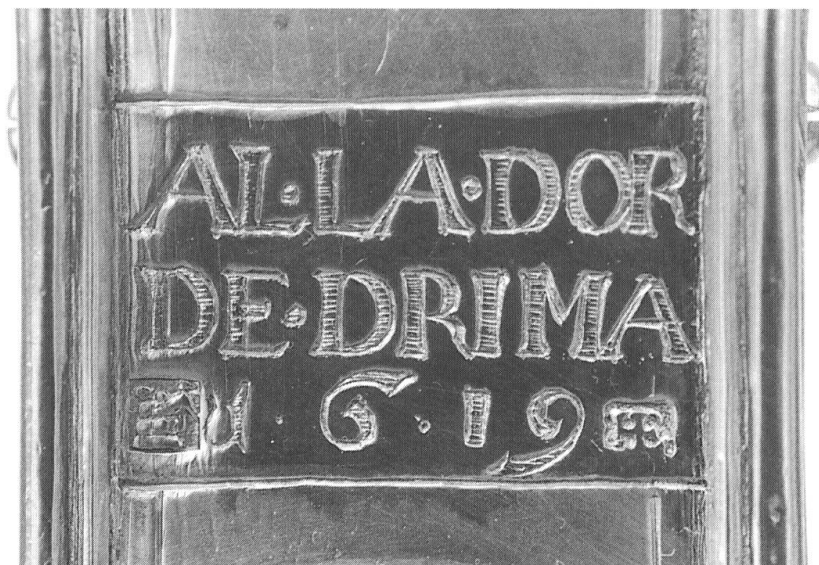 AL·LA·DOR
DE·DRIMA
1·6·19